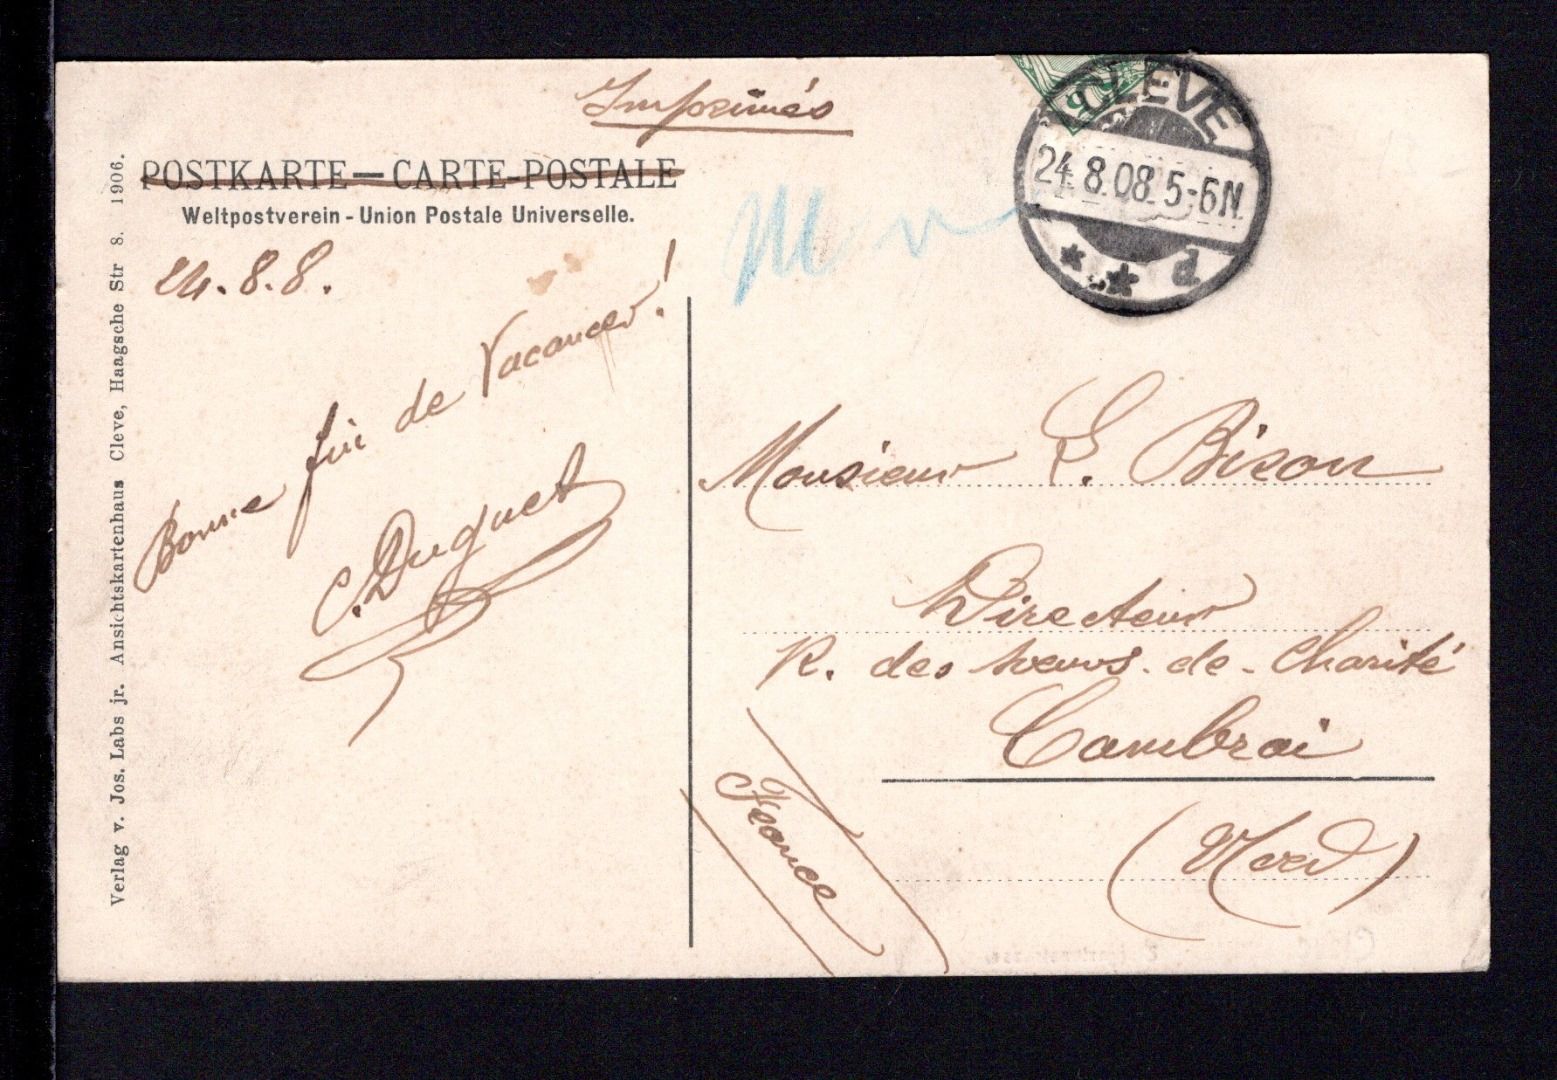 Imprimés
POSTKARTE — CARTE-POSTALE
Weltpostverein - Union Postale Universelle.
24.8.8.
Bonne fin de Vacances!
C. Duquet
Verlag v. Jos. Labs jr. Ansichtskartenhaus Cleve, Haagsche Str 8. 1906.
5
CLEVE
24.8.08.5-6N.
* * d
Monsieur E. Bison
Directeur
R. des soeurs-de-Charité
Cambrai
(Nord)
France